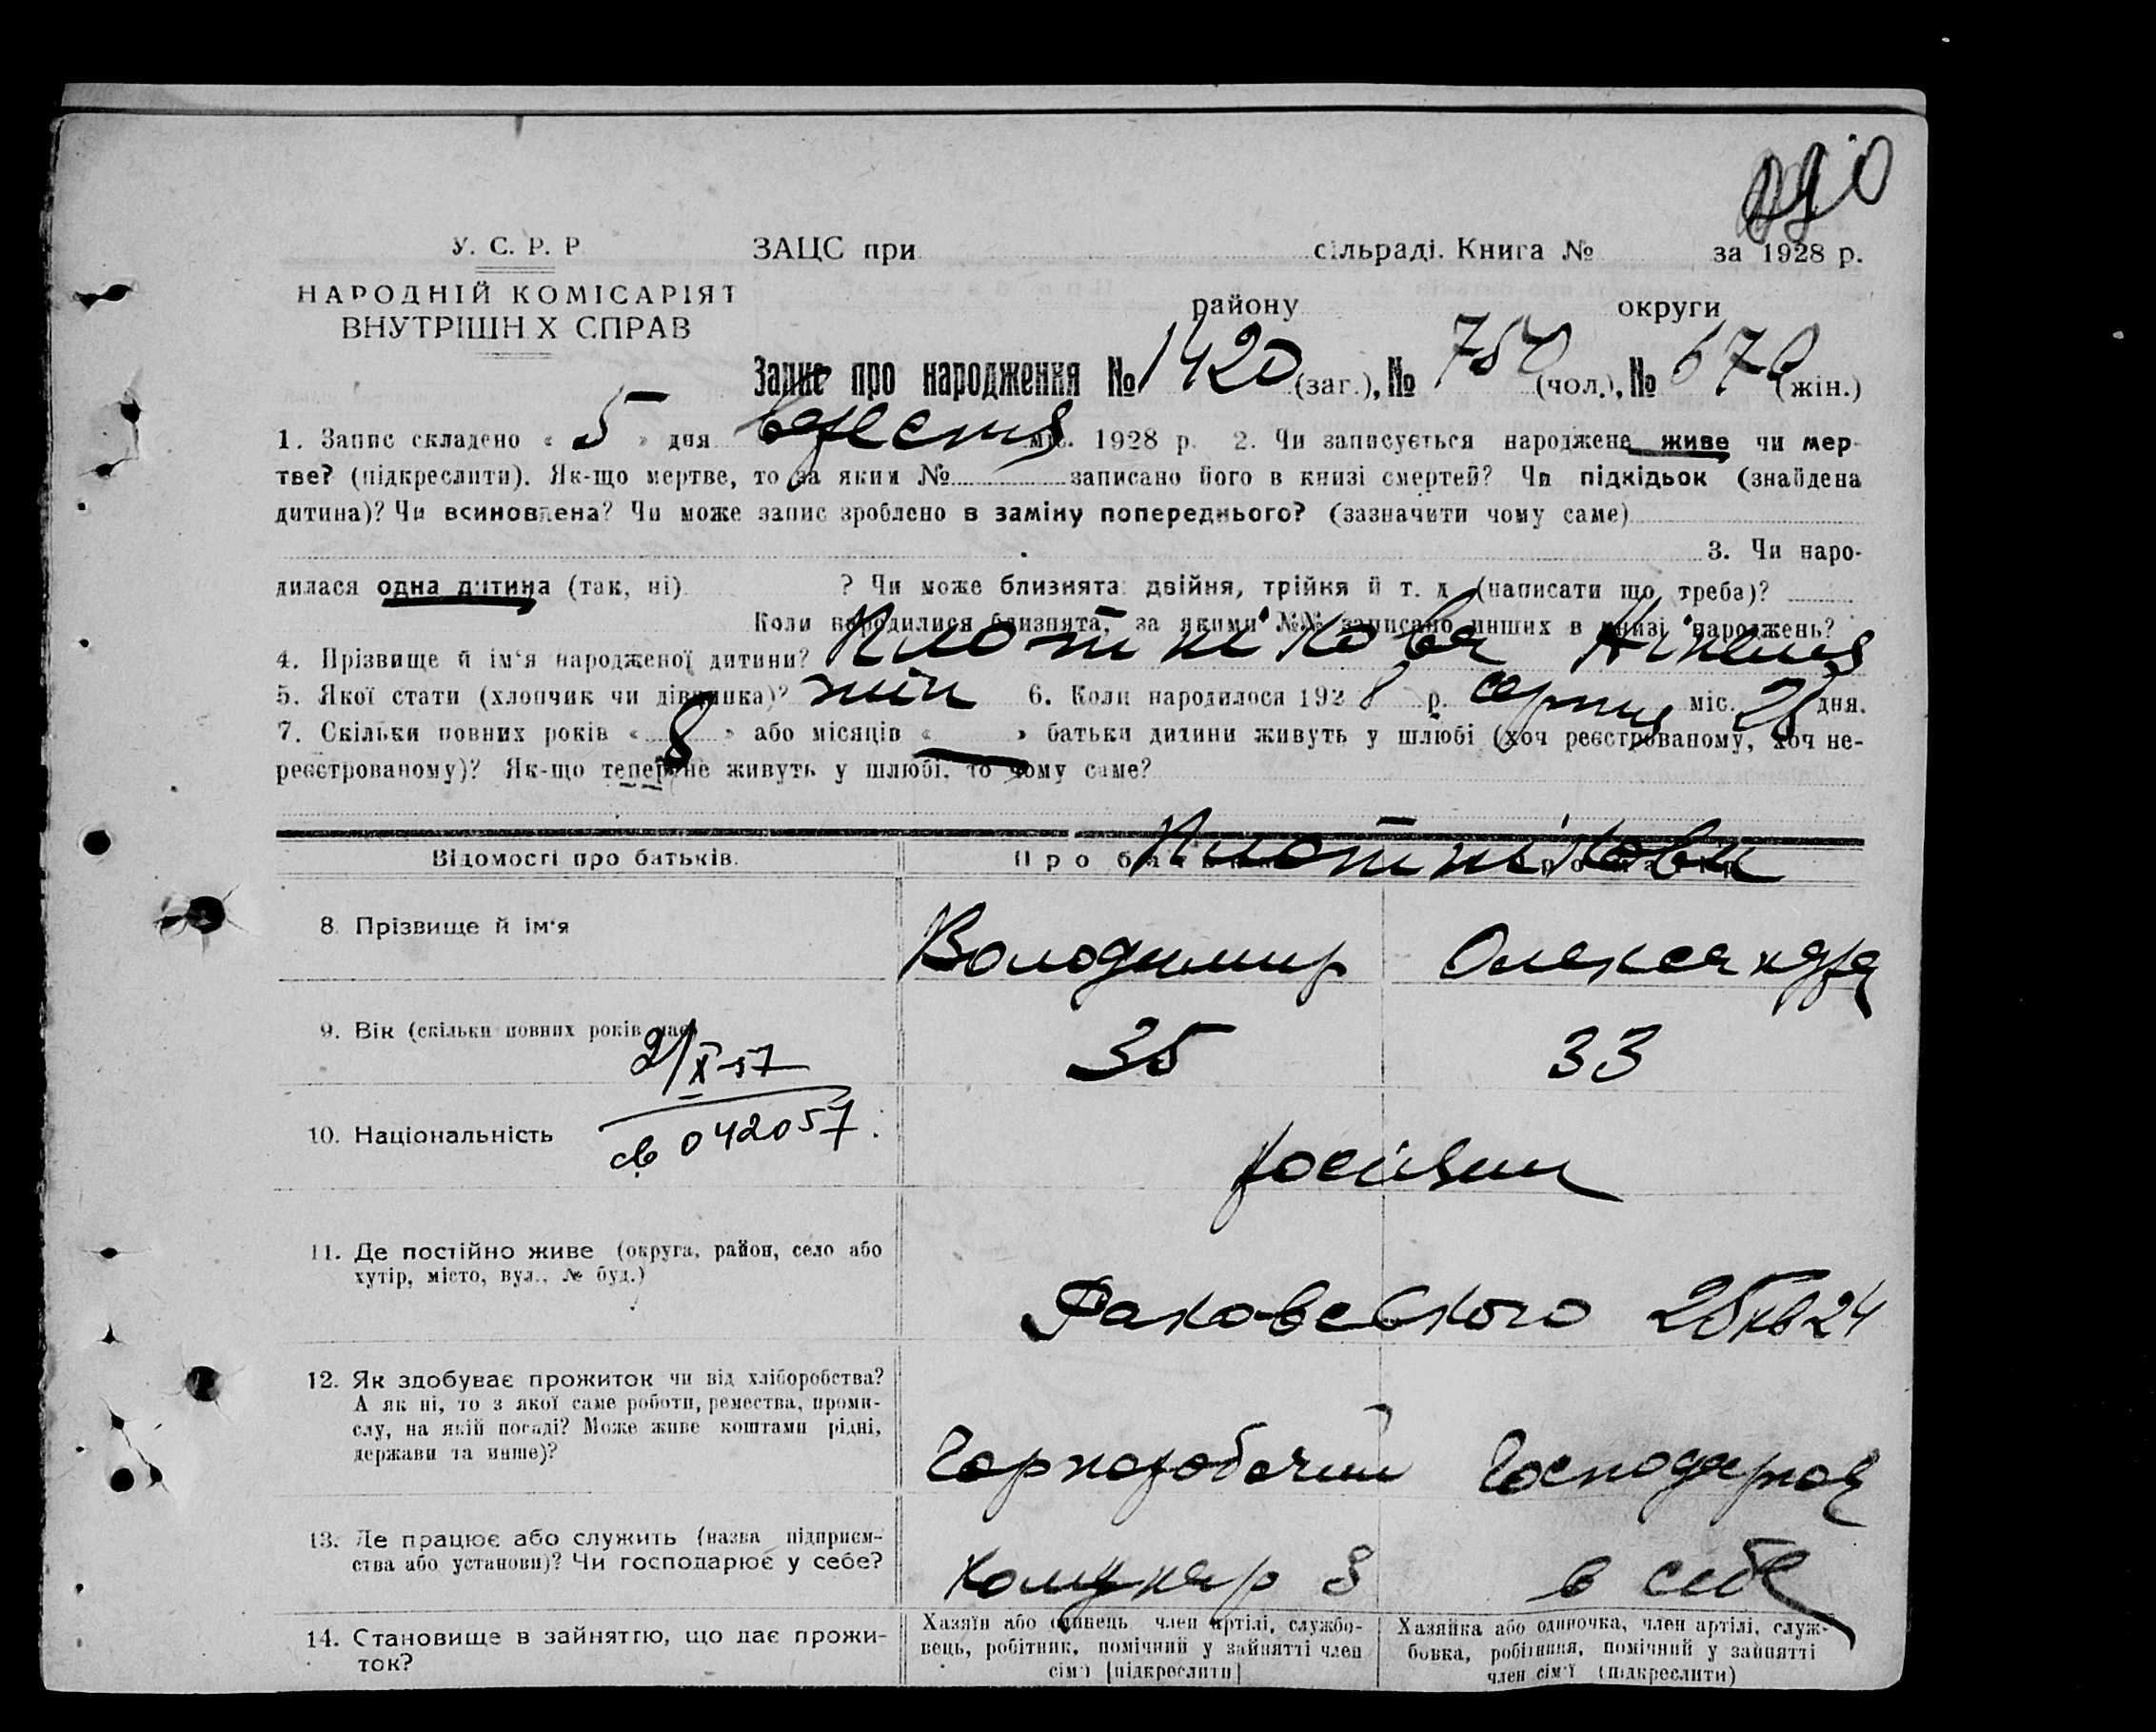 У. С. Р. Р
ЗАЦС при сільраді. Книга № за 1928 р.
НАРОДНІЙ КОМІСАРІЯТ
ВНУТРІШН Х СПРАВ
району округи
Запис про народження № 1420 (заг.), № 750 (чол.), № 670 (жін.)
1. Запис складено « 5 » дня вересня міс. 1928 р. 2. Чи записується народжене живе чи мер-
тве? (підкреслити). Як-що мертве, то за яким № записано його в книзі смертей? Чи підкідьок (знайдена
дитина)? Чи всиновлена? Чи може запис зроблено в заміну попереднього? (зазначити чому саме)
3. Чи наро-
дилася одна дитина (так, ні) ? Чи може близнята: двійня, трійня й т. д. (написати що треба)?
Коли народилися близнята, за якими №№ записано инших в книзі народжень?
4. Прізвище й ім‘я народженої дитини? Плотнікова
5. Якої стати (хлопчик чи дівчинка)? жін 6. Коли народилося 1928 р. серпня міс. 28 дня.
7. Скільки повних років « 8 » або місяців « — » батьки дитини живуть у шлюбі (хоч реєстрованому, хоч не-
реєстрованому)? Як-що тепер не живуть у шлюбі, то чому саме?
Плотнікови
Відомості про батьків. Про батька Про матір
8. Прізвище й ім‘я Володимир Олександра
9. Вік (скільки повних років має) 35 33
2/X-57
св 042057.
10. Національність росіяни
11. Де постійно живе (округа, район, село або
хутір, місто, вул., № буд.)
Раковського 25 кв 24
12. Як здобуває прожиток чи від хліборобства?
А як ні, то з якої саме роботи, ремества, проми-
слу, на якій посаді? Може живе коштами рідні,
держави та инше)?
Чорноробочий Господарює
13. Де працює або служить (назва підприєм-
ства або установи)? Чи господарює у себе?
Комунар в себе
14. Становище в зайняттю, що дає прожи-
ток?
Хазяїн або одинець член артілі, службо-
вець, робітник, помічний у зайнятті член
сім‘ї [підкреслити]
Хазяйка або одиночка, член артілі, служ-
бовка, робітниця, помічний у зайнятті
член сім‘ї (підкреслити)